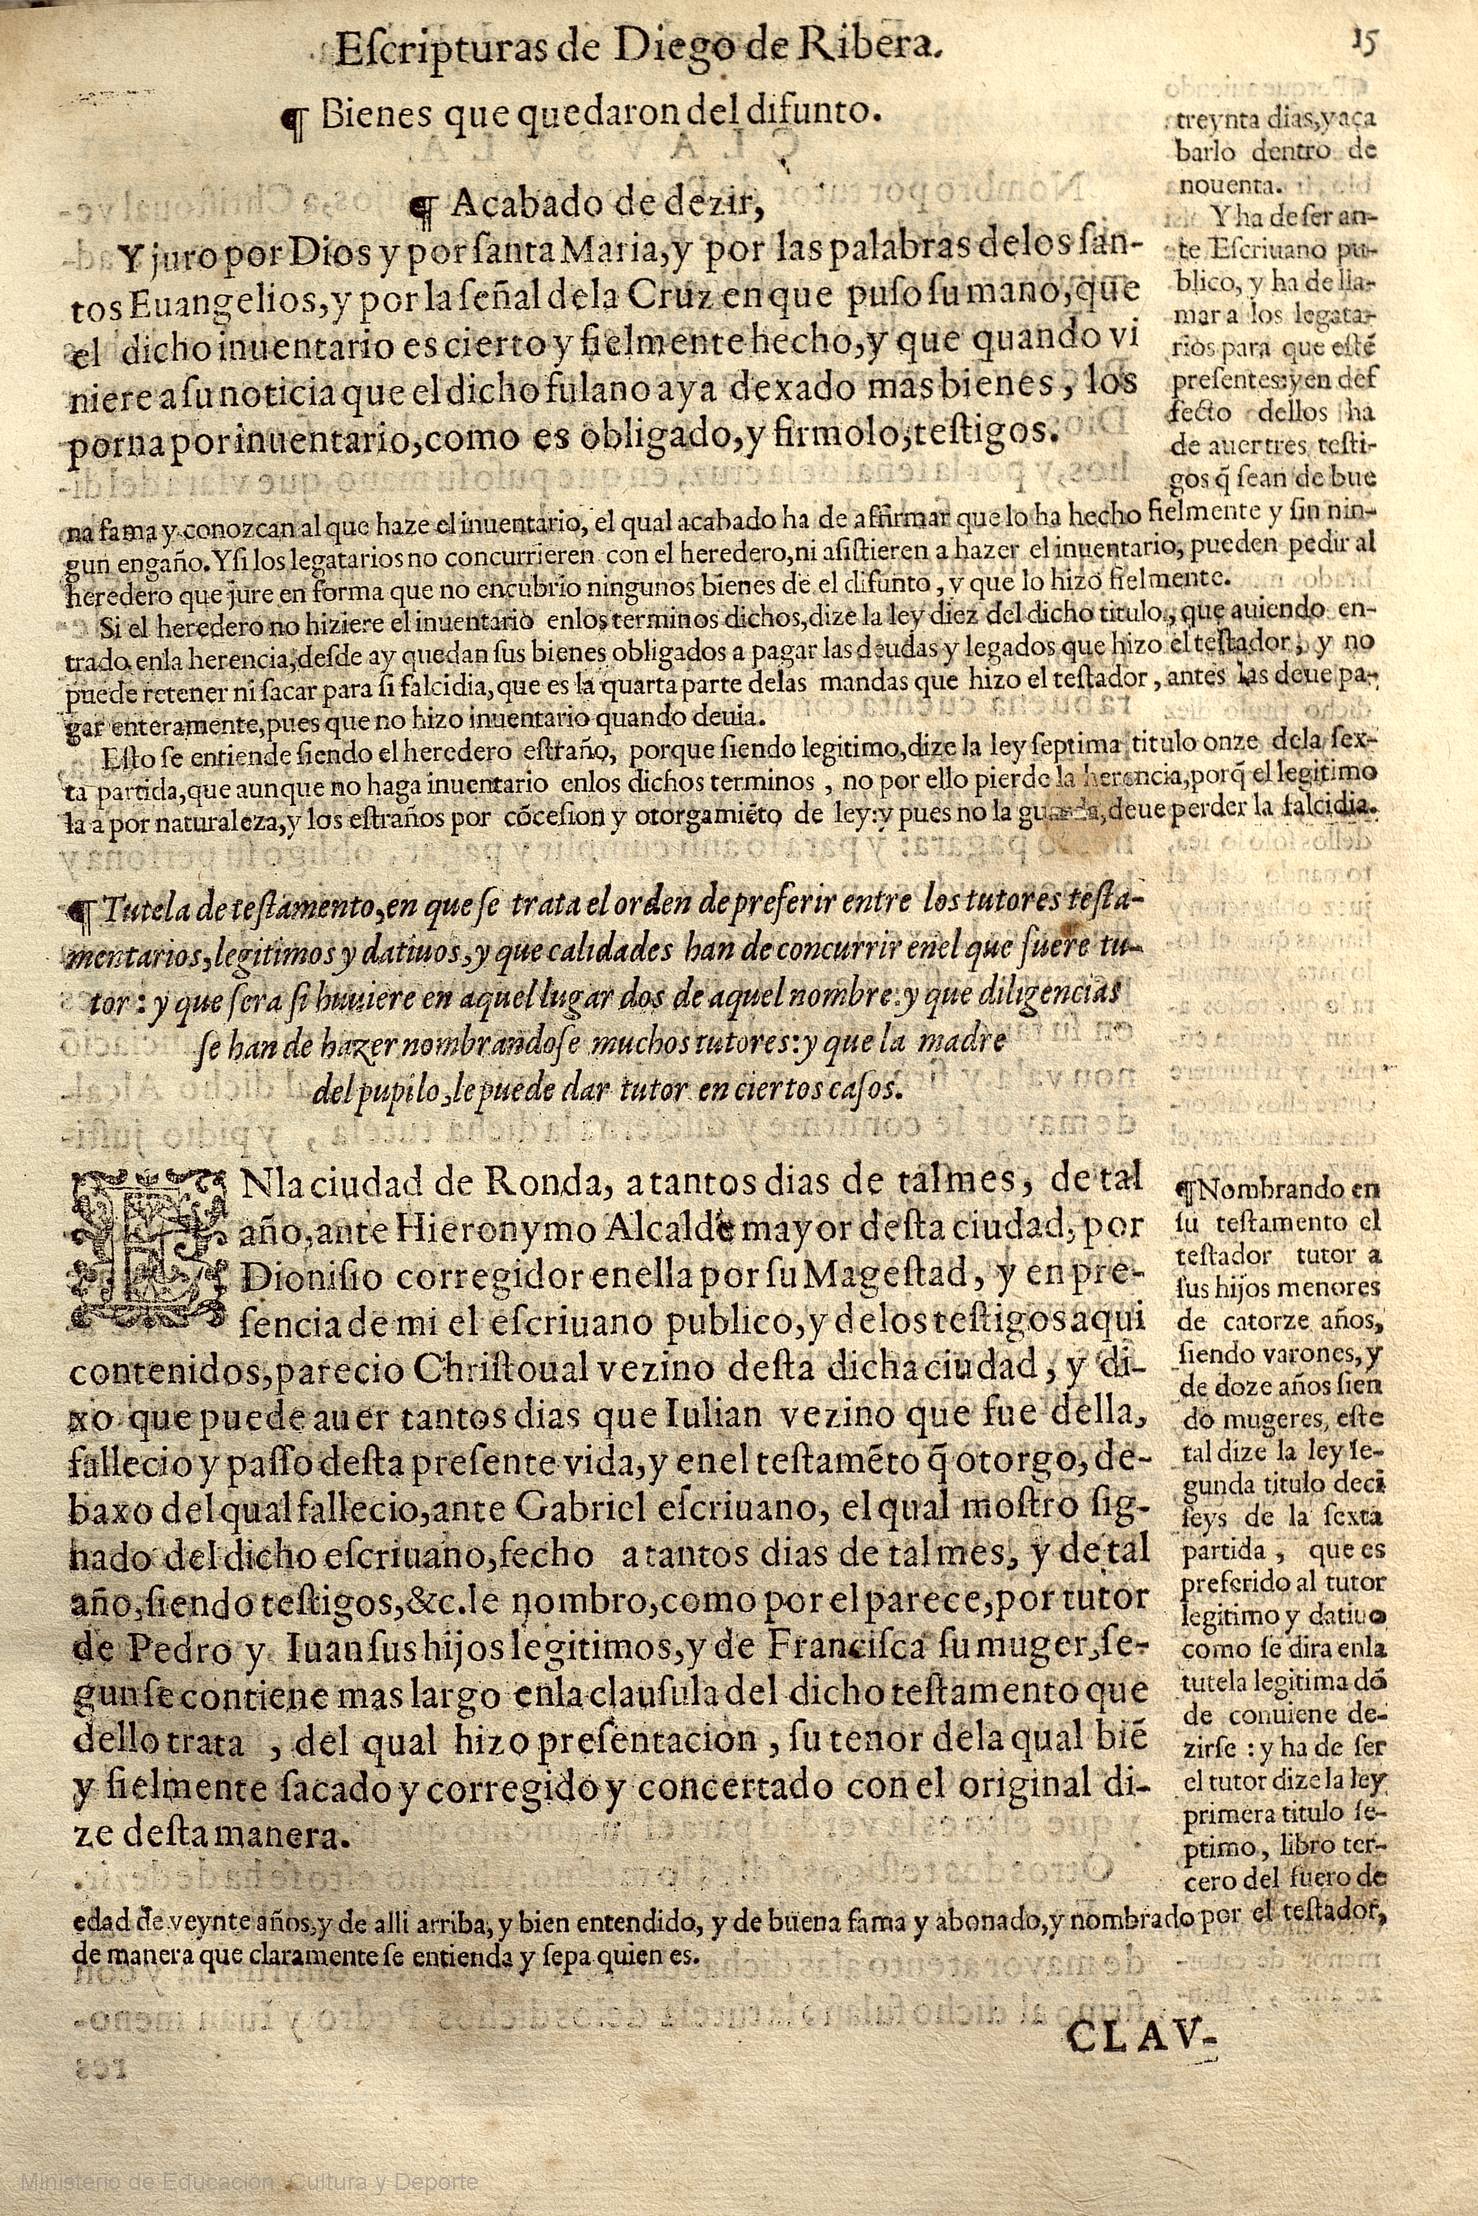 Eſcripturas de Diego de Ribera.
15
¶ Bienes que quedaron del difunto.
¶ Acabado de dezir,
Y juro por Dios y por ſanta Maria, y por las palabras delos ſan-
tos Euangelios, y por la ſeñal dela Cruz en que puſo ſu mano, que
el dicho inuentario es cierto y fielmente hecho, y que quando vi
niere a ſu noticia que el dicho fulano aya dexado mas bienes, los
porna por inuentario, como es obligado, y firmolo, teſtigos.
treynta dias, y aca
barlo dentro de
nouenta.
Y ha de ſer an-
te Eſcriuano pu-
blico, y ha de lla-
mar a los legata-
rios para que eſtẽ
preſentes: y en def
fecto dellos ha
de auer tres teſti-
gos q̃ ſean de bue
na fama y conozcan al que haze el inuentario, el qual acabado ha de affirmar que lo ha hecho fielmente y ſin nin-
gun engaño. Y ſi los legatarios no concurrieren con el heredero, ni aſiſtieren a hazer el inuentario, pueden pedir al
heredero que jure en forma que no encubrio ningunos bienes de el difunto, y que lo hizo fielmente.
Si el heredero no hiziere el inuentario enlos terminos dichos, dize la ley diez del dicho titulo, que auiendo en-
trado enla herencia, deſde ay quedan ſus bienes obligados a pagar las deudas y legados que hizo el teſtador, y no
puede retener ni ſacar para ſi falcidia, que es la quarta parte delas mandas que hizo el teſtador, antes las deue pa-
gar enteramente, pues que no hizo inuentario quando deuia.
Eſto ſe entiende ſiendo el heredero eſtraño, porque ſiendo legitimo, dize la ley ſeptima titulo onze dela ſex-
ta partida, que aunque no haga inuentario enlos dichos terminos, no por ello pierde la herencia, porq̃ el legitimo
la a por naturaleza, y los eſtraños por cõceſion y otorgamiẽto de ley: y pues no la guarda, deue perder la falcidia.
¶ Tutela de teſtamento, en que ſe trata el orden de preferir entre los tutores teſta-
mentarios, legitimos y datiuos, y que calidades han de concurrir enel que fuere tu-
tor: y que ſera ſi huuiere en aquel lugar dos de aquel nombre: y que diligencias
ſe han de hazer nombrandoſe muchos tutores: y que la madre
del pupilo, le puede dar tutor en ciertos caſos.
ENla ciudad de Ronda, a tantos dias de tal mes, de tal
año, ante Hieronymo Alcalde mayor deſta ciudad, por
Dioniſio corregidor enella por ſu Mageſtad, y en pre-
ſencia de mi el eſcriuano publico, y delos teſtigos aqui
contenidos, parecio Chriſtoual vezino deſta dicha ciudad, y di-
xo que puede auer tantos dias que Iulian vezino que fue della,
fallecio y paſſo deſta preſente vida, y enel teſtamẽto q̃ otorgo, de-
baxo del qual fallecio, ante Gabriel eſcriuano, el qual moſtro ſig-
nado del dicho eſcriuano, fecho a tantos dias de tal mes, y de tal
año, ſiendo teſtigos, &c. le nombro, como por el parece, por tutor
de Pedro y Iuan ſus hijos legitimos, y de Franciſca ſu muger, ſe-
gun ſe contiene mas largo enla clauſula del dicho teſtamento que
dello trata, del qual hizo preſentacion, ſu tenor dela qual biẽ
y fielmente ſacado y corregido y concertado con el original di-
ze deſta manera.
¶ Nombrando en
ſu teſtamento el
teſtador tutor a
ſus hijos menores
de catorze años,
ſiendo varones, y
de doze años ſien
do mugeres, eſte
tal dize la ley ſe-
gunda titulo deci
ſeys de la ſexta
partida, que es
preferido al tutor
legitimo y datiuo
como ſe dira enla
tutela legitima dõ
de conuiene de-
zirſe: y ha de ſer
el tutor dize la ley
primera titulo ſe-
ptimo, libro ter-
cero del fuero de
edad de veynte años, y de alli arriba, y bien entendido, y de buena fama y abonado, y nombrado por el teſtador,
de manera que claramente ſe entienda y ſepa quien es.
CLAV-
Ministerio de Educación, Cultura y Deporte